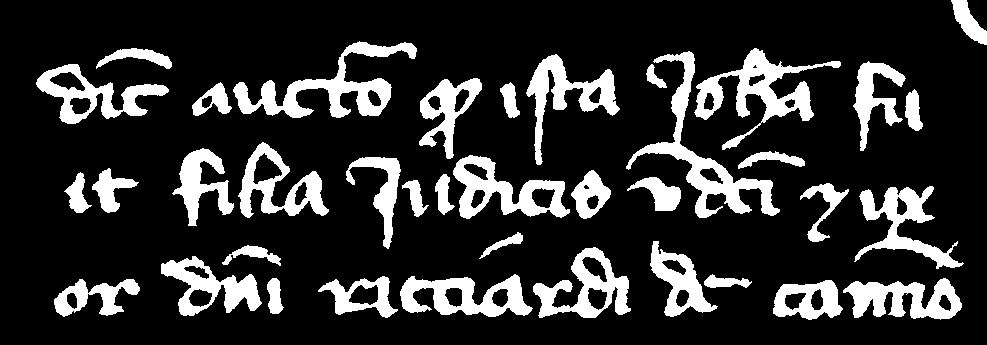 dic̄ auctō ꝙ ista Joh̄a fu
it filia Judicis v̄dc̄i ⁊ ux
or dn̄i ricciardi d̄ camīo